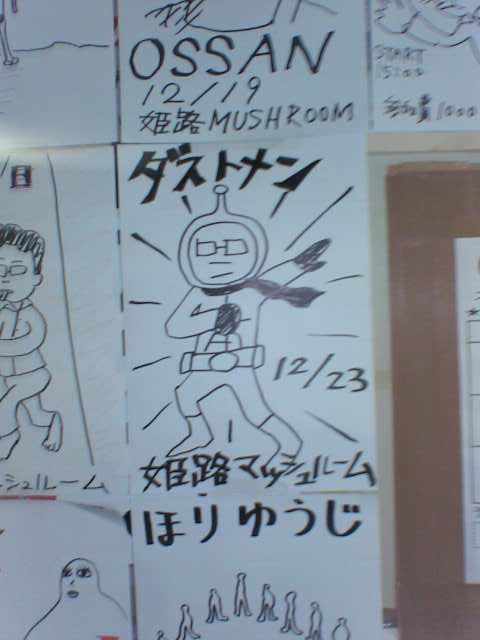 OSSAN
12/19
姫路MUSHROOM
START
15:00
参加費1000
日
ダストメン
12/23
姫路マッシュルーム
シュルーム
ほりゆうじ